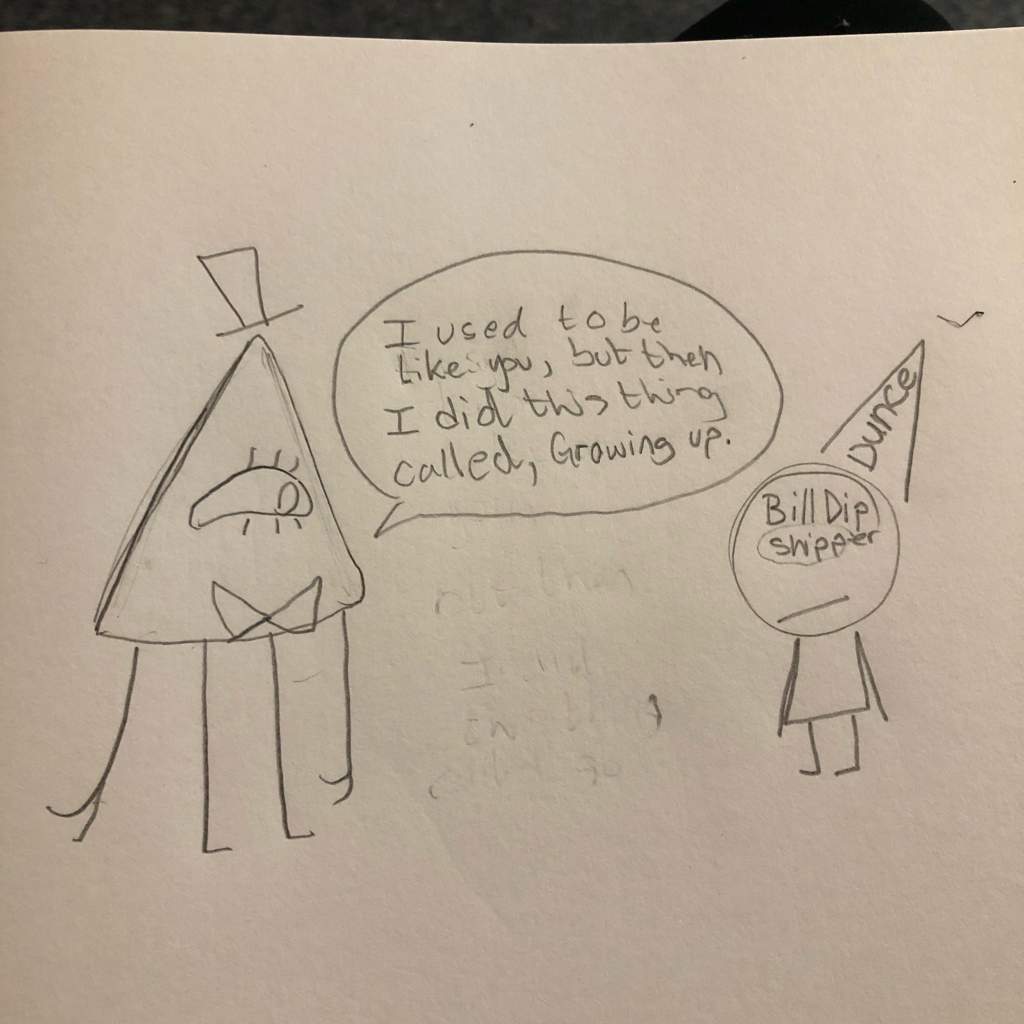 I used to be
like you, but then
I did this thing
called, Growing up.
Dunce
Bill Dip
shipper